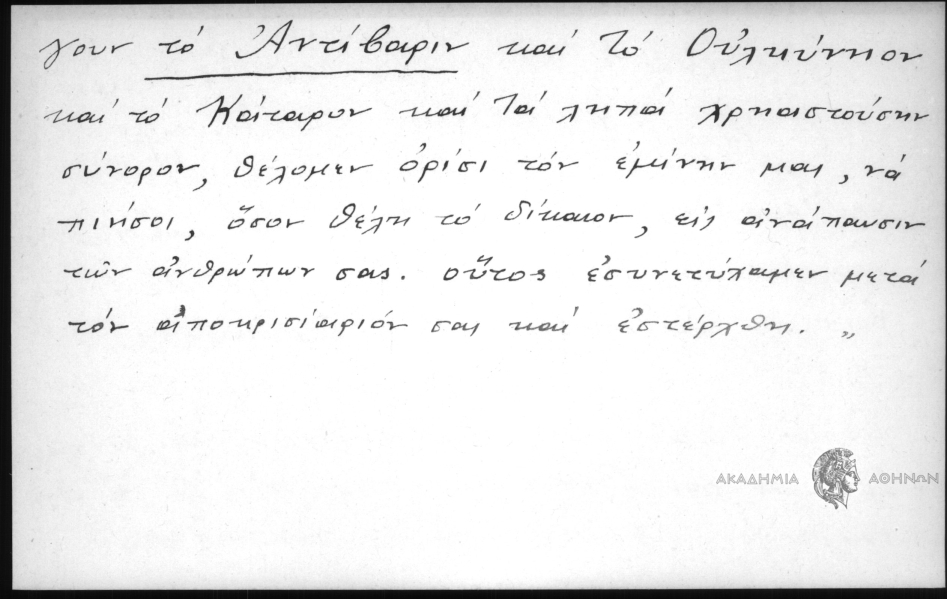 γουν τό Ἀντίβαριν καί τό Οὐλκύνιον
καί τό Κάταρον καί τά λιπά χρηαστούσιν
σύνορον, θέλομεν ὁρίσι τόν ἐμίνην μας, νά
πιήσοι, ὅσον θέλη τό δίκαιον, εἰς ἀνάπαυσιν
τῶν ἀνθρώπων σας. οὕτος ἐσυνετύχαμεν μετά
τόν ἀποκρισιαριόν σας καί ἐστέρχθη. „
ΑΚΑΔΗΜΙΑ ΑΘΗΝΩΝ